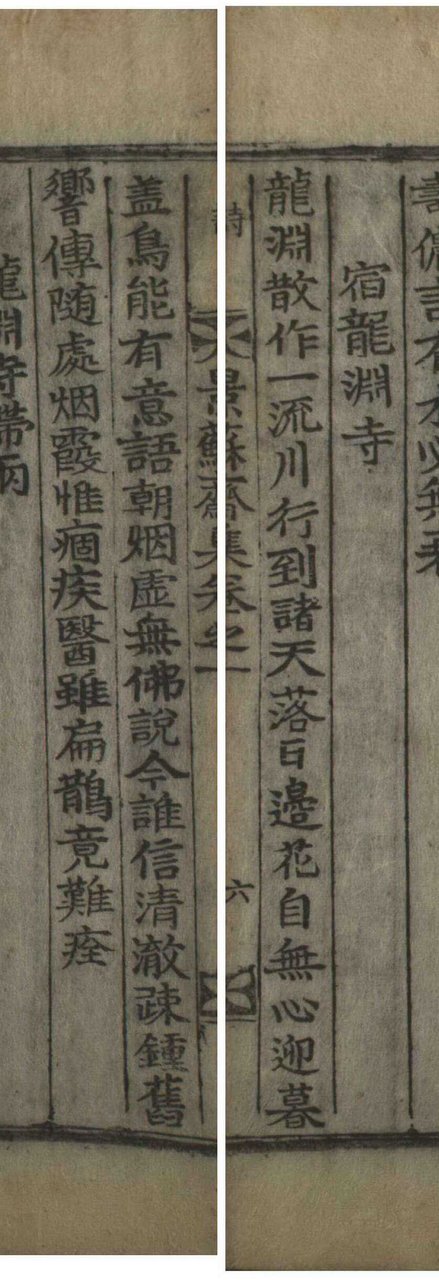 宿龍淵寺
龍淵散作一流川行到諸天落日邊花自無心迎暮
詩 景蘇齋集卷之一 六
盖鳥能有意語朝烟虛無佛說今誰信清澈疎鍾舊
響傳随處烟霞惟痼疾醫雖扁鵲竟難痊
龍淵寺帶雨